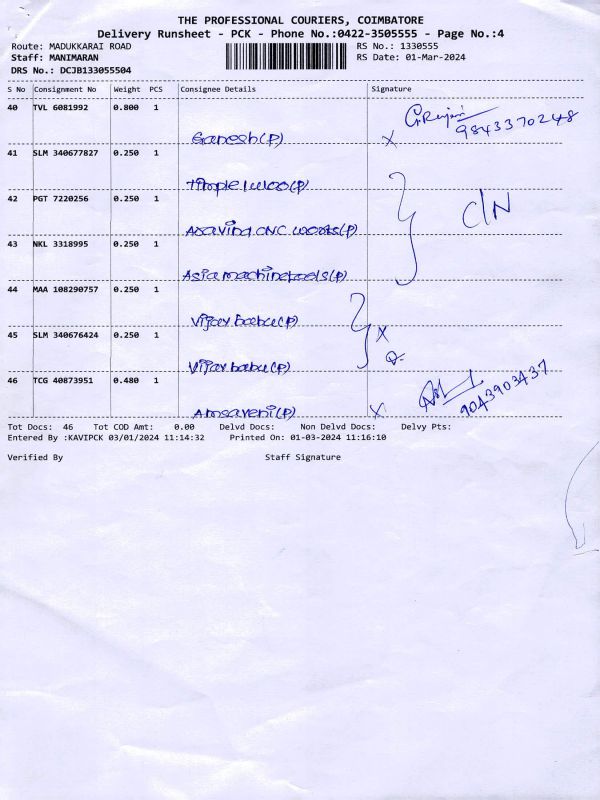 THE PROFESSIONAL COURIERS, COIMBATORE
Delivery Runsheet - PCK - Phone No.:0422-3505555 - Page No.:4
Route: MADUKKARAI ROAD RS No.: 1330555
Staff: MANIMARAN RS Date: 01-Mar-2024
DRS No.: DCJB133055504
S No Consignment No Weight PCS Consignee Details Signature
40 TVL 6081992 0.800 1
Ganesh(P) X 9843370248
41 SLM 340677827 0.250 1
(P)
42 PGT 7220256 0.250 1 C/N
Aravind CNC works(P)
43 NKL 3318995 0.250 1
Asia machinetools(P)
44 MAA 108290757 0.250 1
Vijay babu(P) X
45 SLM 340676424 0.250 1
Vijay babu(P)
46 TCG 40873951 0.480 1
Amsaveni(P) X 9043903437
Tot Docs: 46 Tot COD Amt: 0.00 Delvd Docs: Non Delvd Docs: Delvy Pts:
Entered By :KAVIPCK 03/01/2024 11:14:32 Printed On: 01-03-2024 11:16:10
Verified By Staff Signature